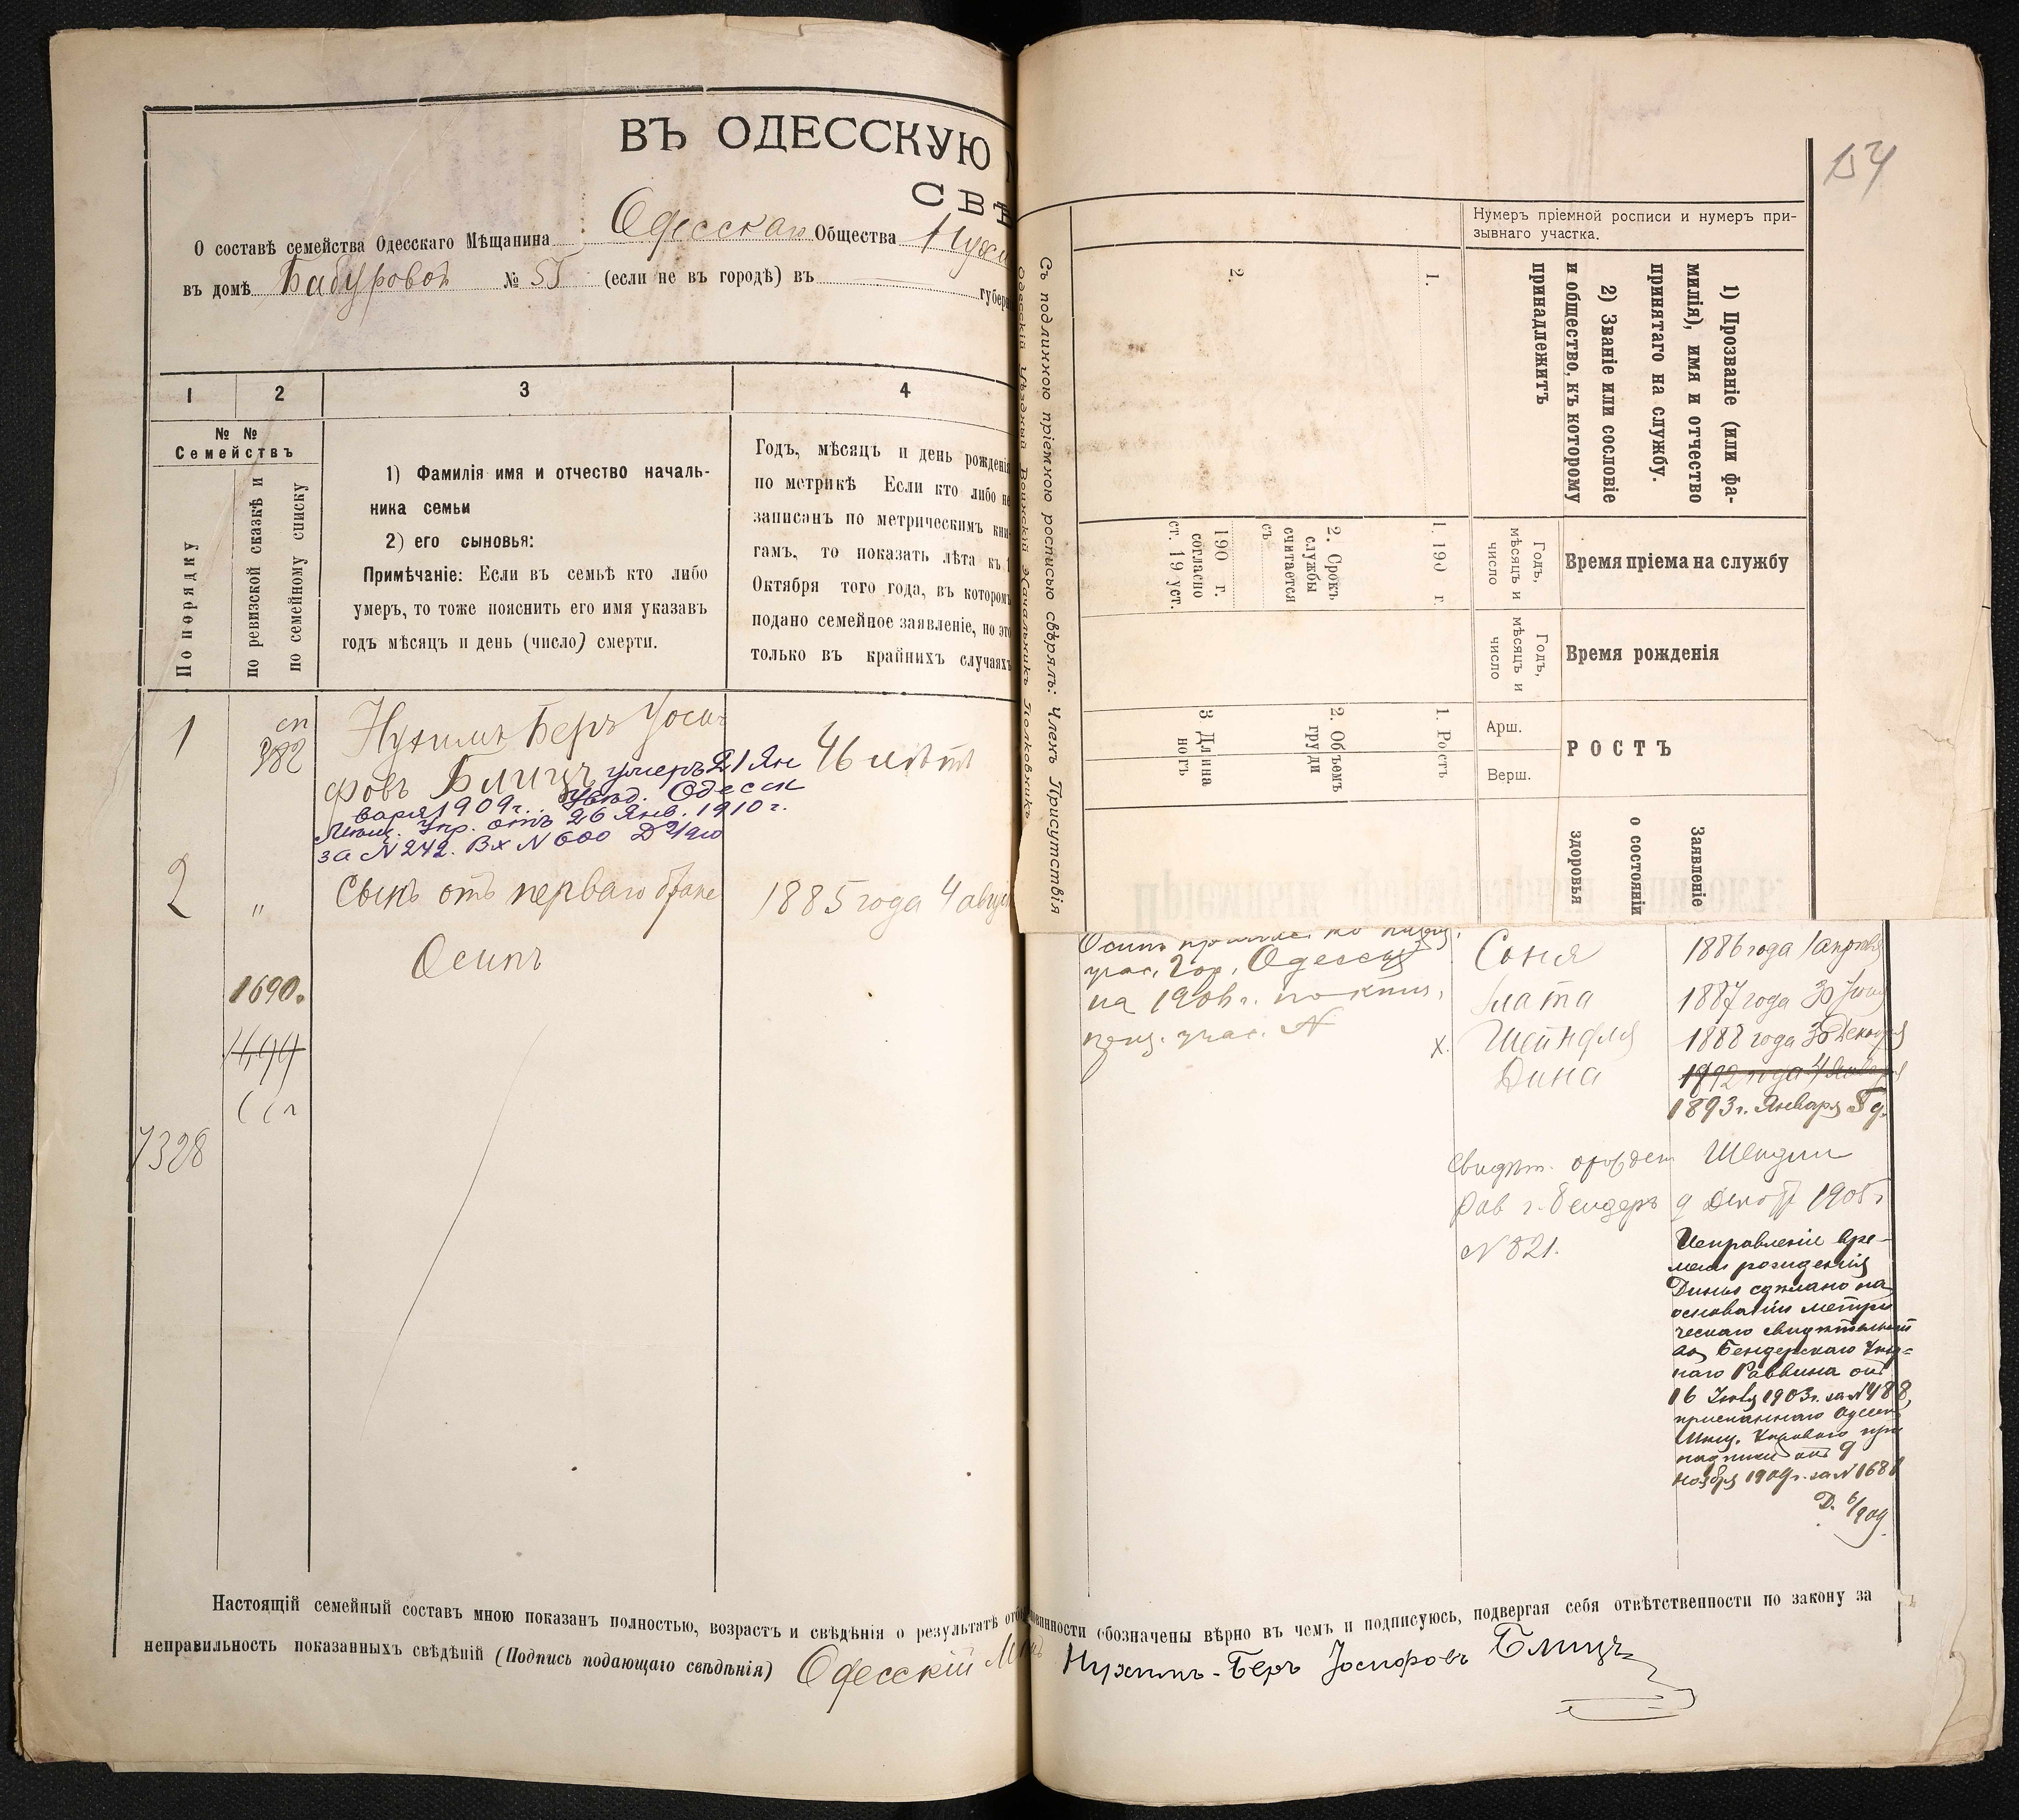 ВЪ ОДЕССКУЮ
СВѢ
О составѣ семейства Одесскаго Мѣщанина Одесскаго Общества Нухи
въ домѣ Бабуровой № 55 (если не въ городѣ) въ губер
1
2
3
4
№ №
Семействъ
По порядку
по ревизской сказкѣ и
по семейному списку
1) Фамилія имя и отчество началь-
ника семьи
2) его сыновья:
Примѣчаніе: Если въ семьѣ кто либо
умеръ, то тоже пояснить его имя указавъ
годъ мѣсяцъ и день (число) смерти.
Годъ, мѣсяцъ и день рожденія
по метрикѣ Если кто либо не
записанъ по метрическимъ кни-
гамъ, то показать лѣта къ 1
Октября того года, въ которомъ
подано семейное заявленіе, но это
только въ крайнихъ случаяхъ
1
сп
982
Нухимъ Беръ Иоси-
фовъ Блицъ умеръ 21 Ян
варя 1909 г. Увѣд. Одесск
Мѣщ. Упр. отъ 26 Янв. 1910 г.
за N 242. Вх N 600 Д
46 лѣтъ
2
"
Сынъ отъ перваго брака
Осипъ
1885 года 4 август
1690.
1499
7328
154
Нумеръ пріемной росписи и нумеръ при-
зывнаго участка.
1) Прозваніе (или фа-
милія), имя и отчество
принятаго на службу.
2) Званіе или сословіе
и общество, къ которому
принадлежитъ
1.
2.
Время пріема на службу
Годъ,
мѣсяцъ и
число
1. 190 г.
2. Срокъ
службы
считается
съ
190 г.
согласно
ст. 19 уст.
Время рожденія
Годъ,
мѣсяцъ и
число
РОСТЪ
Арш.
Верш.
1. Ростъ
2. Объемъ
груди
3. Длина
ногъ
Заявленіе
о состояніи
здоровья
Съ подлинною пріемною росписью свѣрялъ: Членъ Присутствія
Одесскій Уѣздный Воинскій Начальникъ Полковникъ
Осипъ
учас. Гор. Одессы
на 1906 г.
учас. N
Соня
1886 года 1 апрѣля
Злата
1887 года 30 Іюня
х. Шейндля
1888 года 30 Декабря
Дина
1892 года 4 Января
1893 г. Января 5 д.
Свидѣт.
Шендли
Рав г. Бендеръ
9 Декабр 1905 г
N 821.
Исправленіе вре-
мени рожденія
Дины сдѣлано на
основаніи метри
ческаго свидѣтельст
ва Бендерскаго Уѣзд-
наго Раввина отъ
16 Іюля 1903 г. за N 488,
присланнаго Одесск
Мѣщ. Управою при
надписи отъ 9
ноября 1909 г. за N 1681
Д. 6/909
Настоящій семейный составъ мною показанъ полностью, возрастъ и свѣдѣнія о результатѣ отб повинности обозначены вѣрно въ чемъ и подписуюсь, подвергая себя отвѣтственности по закону за
неправильность показанныхъ свѣдѣній (Подпись подающаго свѣдѣнія) Одесскій Мѣщ Нухимъ-Беръ Іосифовъ Блицъ